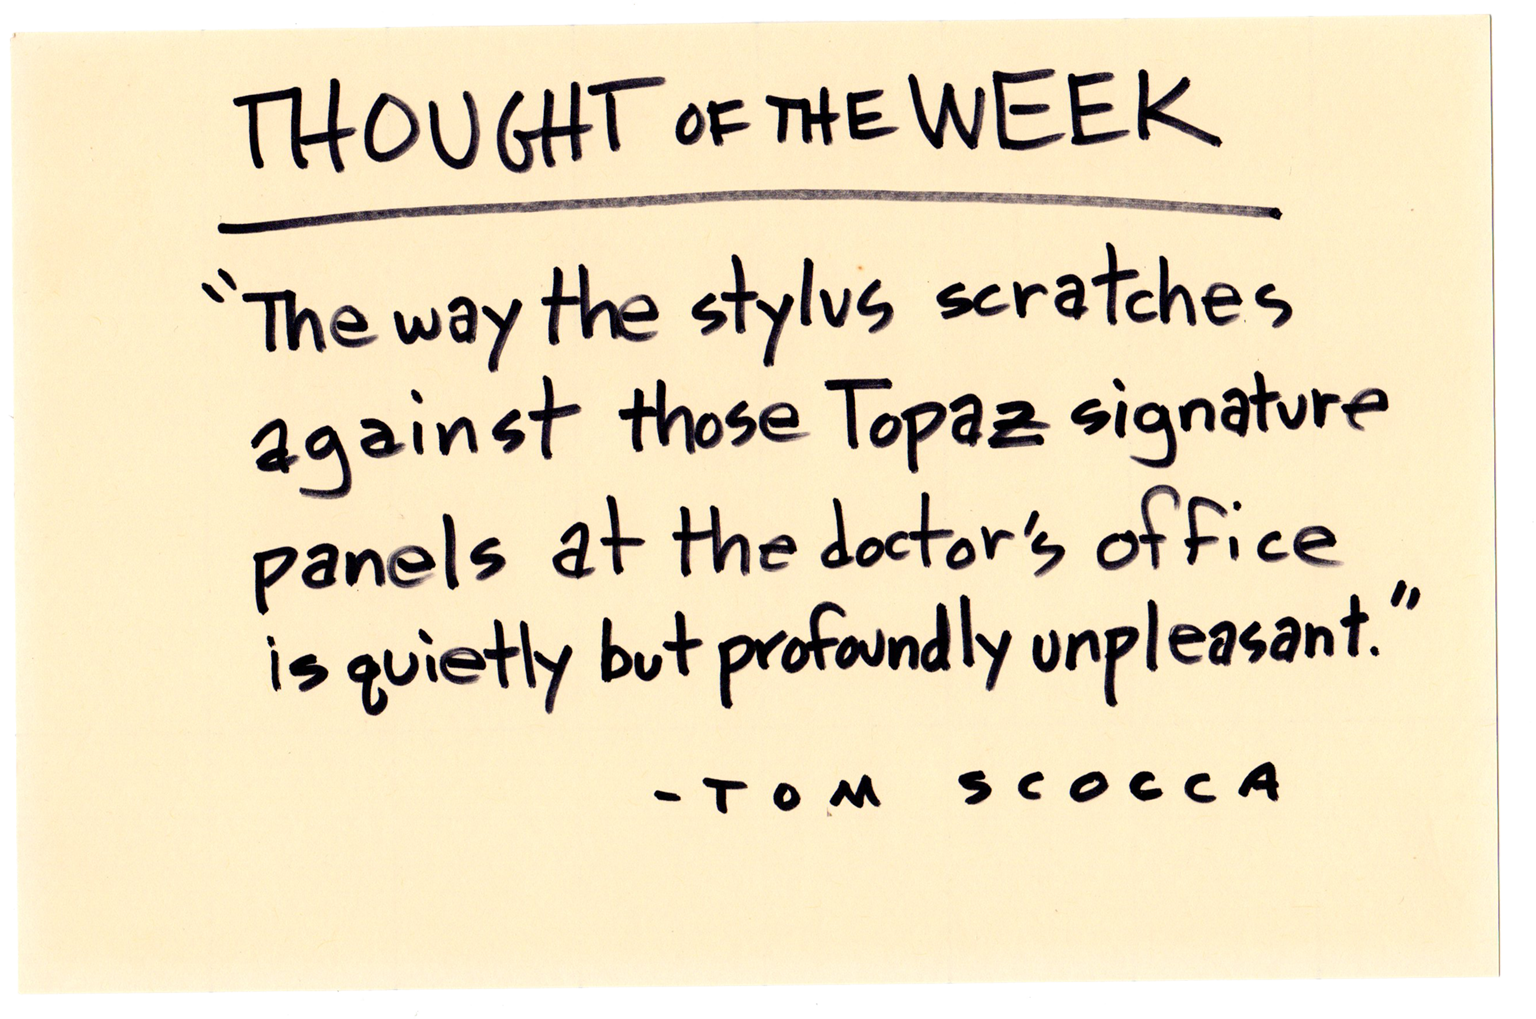 THOUGHT OF THE WEEK
“The way the stylus scratches
against those Topaz signature
panels at the doctor's office
is quietly but profoundly unpleasant.”
- TOM SCOCCA